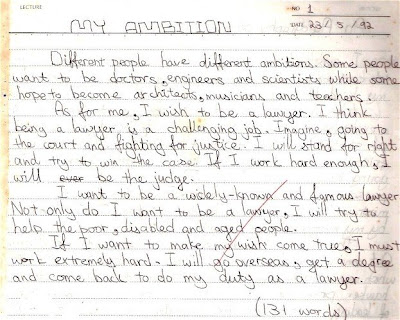 LECTURE
NO 1
DATE 23/5/92
MY AMBITION
Different people have different ambitions. Some people
want to be doctors, engineers and scientists while some
hope to become architects, musicians and teachers.
As for me, I wish to be a lawyer. I think
being a lawyer is a challinging job. Imagine, going to
the court and fighting for justice. I will stand for right
and try to win the case. If I work hard enough, I
will ever be the judge.
I want to be a widely-known and famous lawyer
Not only do I want to be a lawyer, I will try to
help the poor, disabled and aged people.
If I want to make my wish come true, I must
work extremely hard. I will go overseas, get a degree
and come back to do my duty as a lawyer.
(131 words)